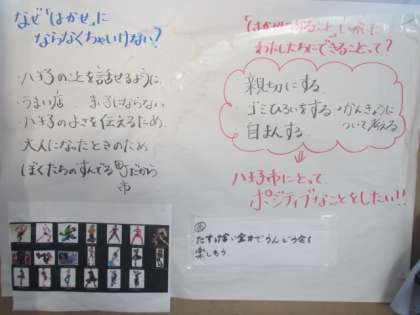 なぜ「はかせ」に
ならなくちゃいけない?
・八王子のことを話せるように
・うまい店 まい子にならない
・八王子のよさを伝えるため
・大人になったときのため
・ぼくたちのすんでる町だから
市
わたしたちにできることって?
親切にする
ゴミひろいをする・かんきょうに
ついて考える
自まんする
八王子市にとって
ポジティブなことをしたい!!
楽しもう